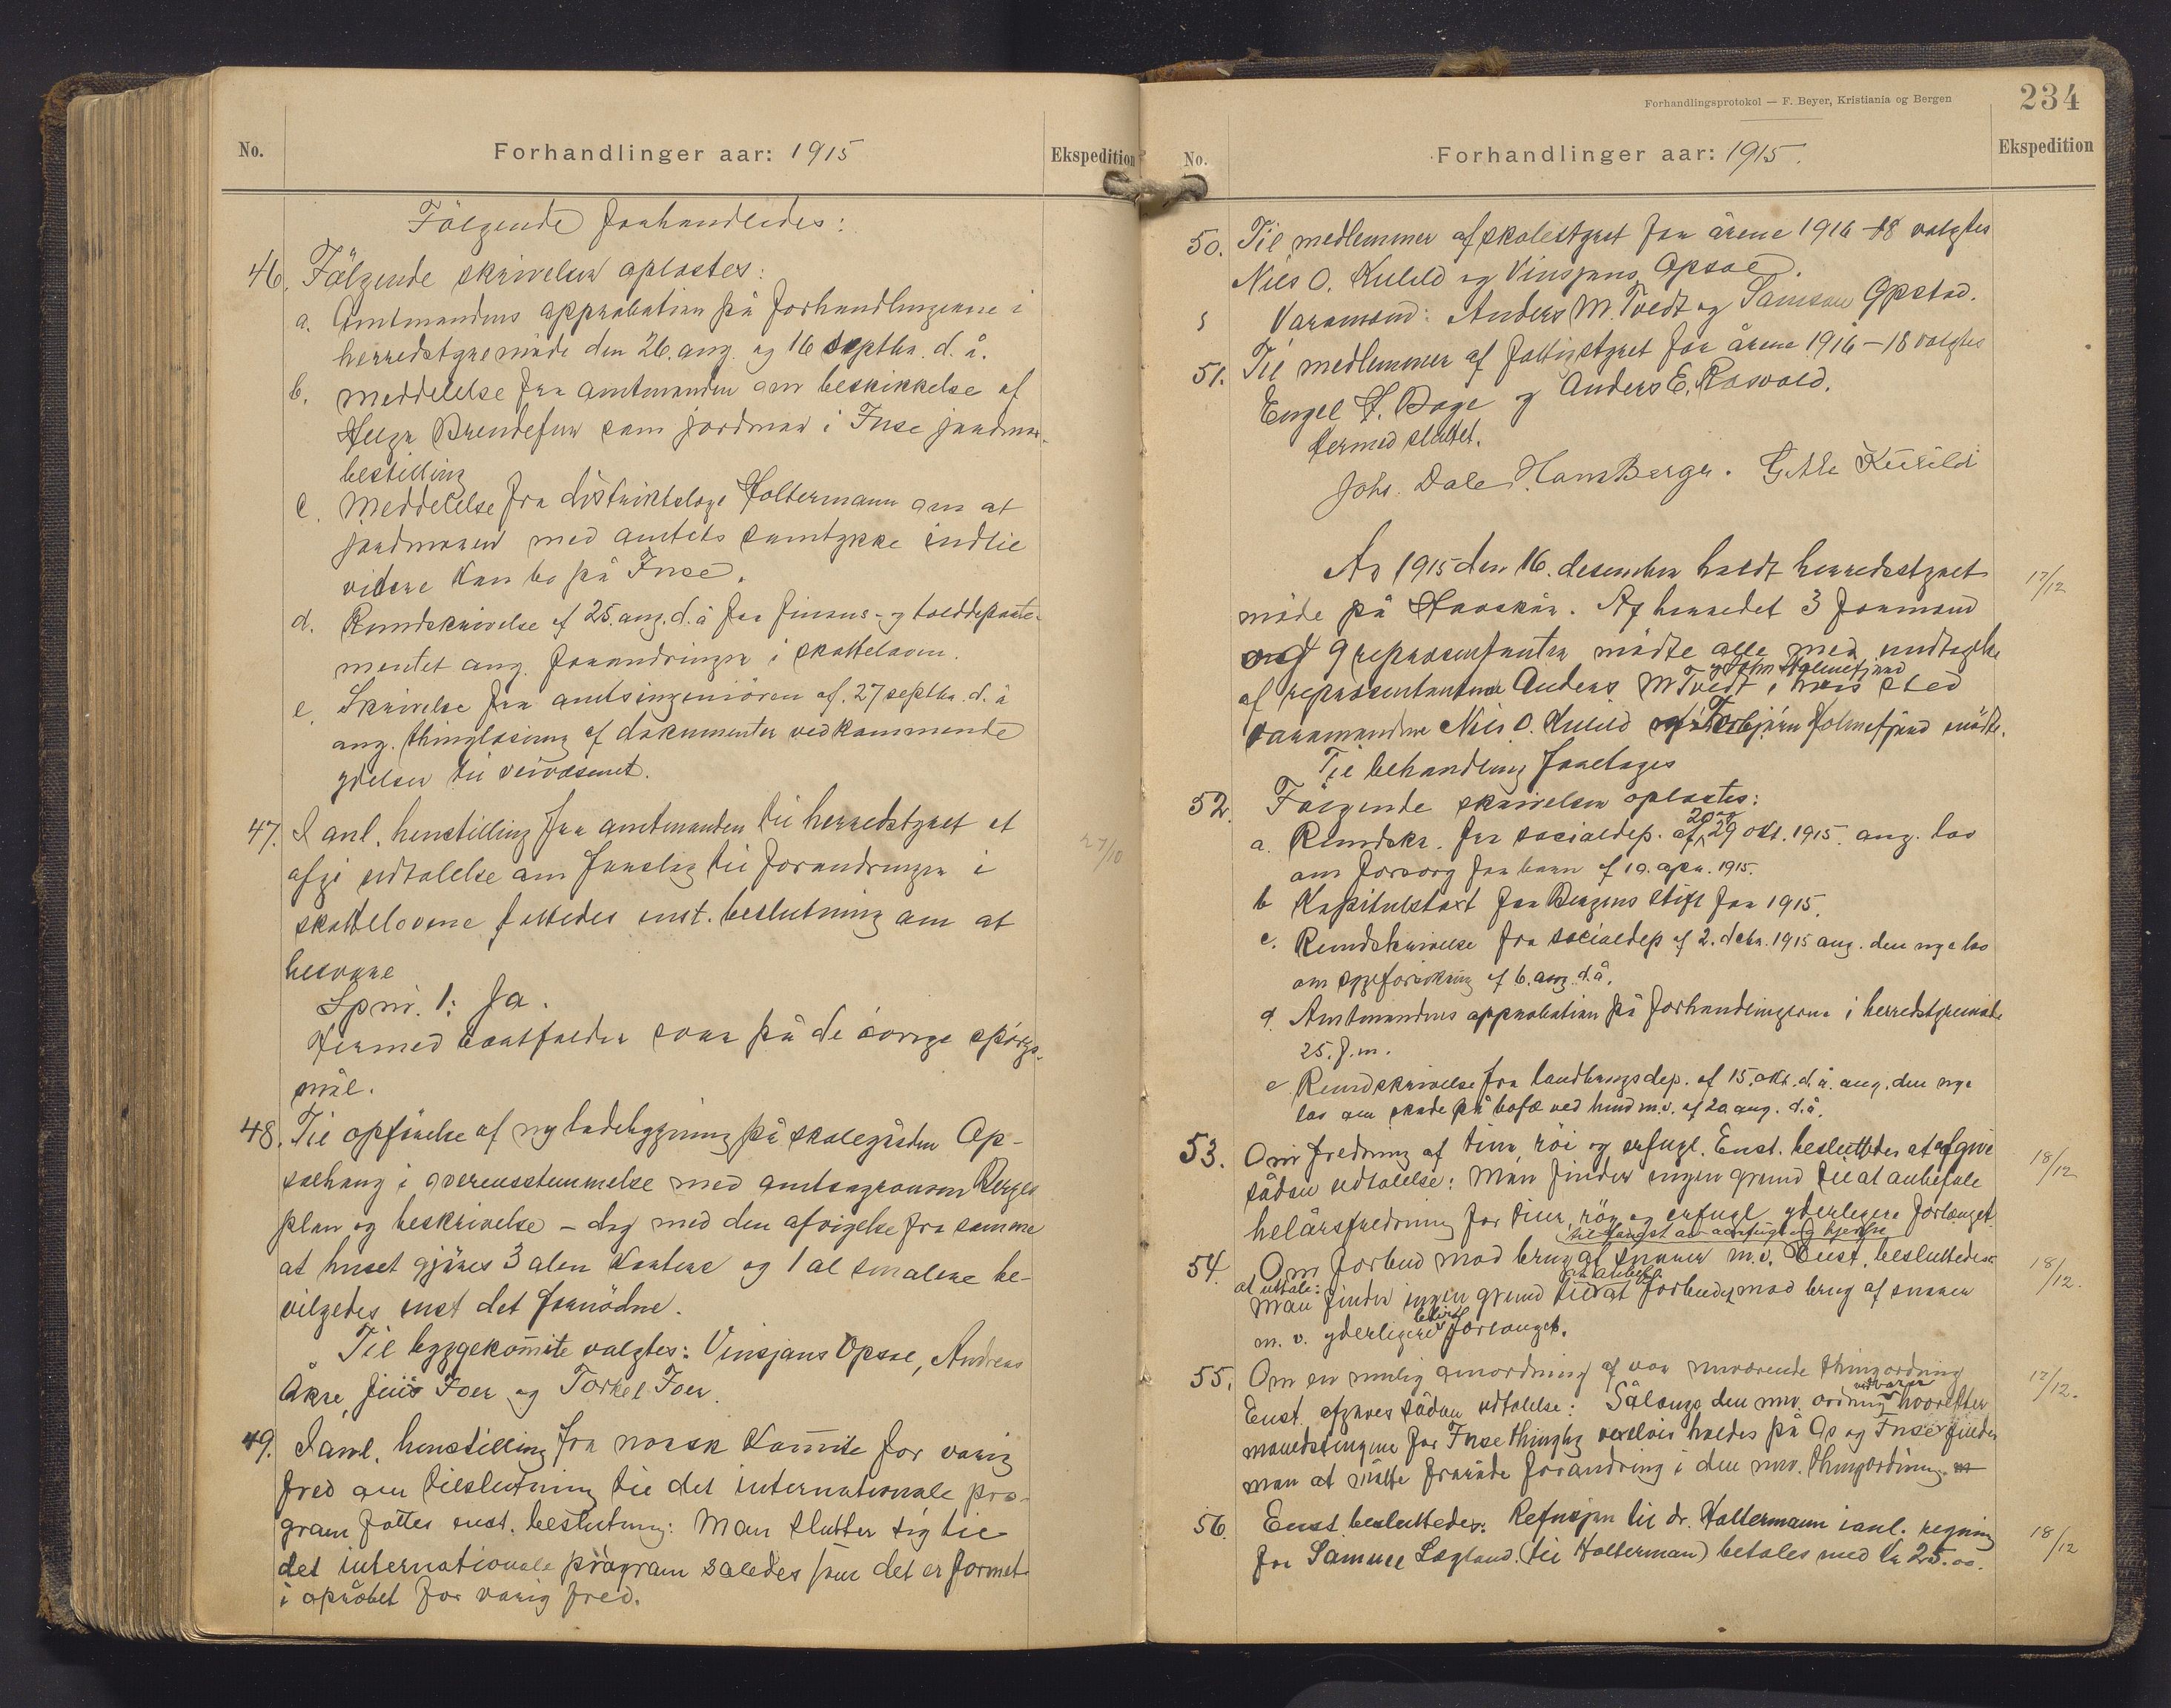 No.
Forhandlinger aar: 1915
Ekspedition
Følgende forhandledes:
46. Følgende skrivelser oplæstes:
a. Amtmandens approbation på forhandlingerne i
herredstyremøde den 26. aug. og 16 septbr. d. å.
b. Meddelelse fra amtmanden om beskikkelse af
Helga Brendefur som jordmor i Fuse jordmor-
bestilling
c. Meddelelse fra distriktslæge Holtermann om at
jordmoren med amtets samtykke indtil
videre kan bo på Fuse.
d. Rundskrivelse af 25. aug. d. å fra finans- og tolddeparte-
mentet ang. forandringer i skatteloven.
e. Skrivelse fra amtsingeniøren af 27 septbr. d. å
ang. thinglæsning af dokumenter vedkommende
ydelser til veivæsenet.
47. I anl. henstilling fra amtmanden til herredstyret at
afgi udtalelse om forslag til forandringer i
skattelovene fattedes enst. beslutning om at
besvare
Spm. 1: Ja.
Hermed bortfalder svar på de øvrige spørgs-
mål.
27/10
48. Til opførelse af ny ladebygning på skolegården Op-
salhaug i overensstemmelse med amtsagronom Berges
plan og beskrivelse – dog med den afvigelse fra samme
at huset gjøres 3 alen kortere og 1 al smalere be-
vilgedes enst det fornødne.
Til byggekomite valgtes: Vinsjans Opsal, Andreas
Åkre, Nils Foer og Torkel Foer.
49. I anl. henstilling fra norsk komite for varig
fred om tilslutning til det internationale pro-
gram fattes enst. beslutning: Man slutter sig til
det internationale program således som det er formet
i opråbet for varig fred.
Forhandlingsprotokol — F. Beyer, Kristiania og Bergen
234
No.
Forhandlinger aar: 1915.
Ekspedition
50. Til medlemmer af skolestyret for årene 1916–18 valgtes
Niels O. Kulild og Vinsjans Opsal.
Varamænd: Anders M. Tvedt og Samson Opstad.
51. Til medlemmer af fattigstyret for årene 1916–18 valgtes
Engel H. Boge og Anders E. Røsvold.
Hermed sluttet.
Johs. Dale Hans Berge. Kulild
Ar 1915 den 16. desember holdt herredsstyret
møde på Havskår. Af herredet 3 formænd
og 9 repræsentanter mødte alle med undtagelse
af repræsentanterne Anders M Tvedt og John Holmefjord i hvis sted
varamændene Niels O. Kulild og Torbjørn Holmefjord mødte.
17/12
Til behandling foretages
52. Følgende skrivelser oplæstes:
a. Rundskr. fra socialdep. af 20 og 29 okt. 1915. ang. lov
om forsorg for barn af 10. apr. 1915.
b Kapitelstakst for Bergens stift for 1915.
c. Rundskrivelse fra socialdep af 2. debr. 1915 ang. den nye lov
om sygeforsikring af 6. aug. d. å.
d. Amtmandens approbation på forhandlingerne i herredstyremøde
25. f. m.
e Rundskrivelse fra landbrugsdep. af 15. okt. d. å. ang. den nye
lov om skade på bofæ ved hund m. v. af 20 aug. d. å.
53. Om fredning af tiur, røi og orfugl. Enst. besluttedes at afgive
sådan udtalelse: Man finder ingen grund til at anbefale
helårsfredning for tiur, røy og orfugl yderligere forlænget.
18/12
54. Om forbud mod brug af snarer til fangst av aarfugl og hjerpe m. v. Enst. besluttedes
at uttale:
Man finder ingen grund til at anbefale forbudet mod brug af snarer
m. v. yderligere blir forlænget.
18/12.
55. Om en mulig omordning af vor nuværende thingordning
Enst. afgaves sådan udtalelse: Sålænge den nuv. ordning vedvarer hvorefter
månedstingene for Fuse thinglag vexelvis holdes på Os og Fuse finder
man at måtte fraråde forandring i den nuv. thingordning.
17/12.
56. Enst. besluttedes: Refusjon til dr. Holtermann i anl. regning
for Samuel Løgland (til Holterman) betales med kr 25.00.
18/12